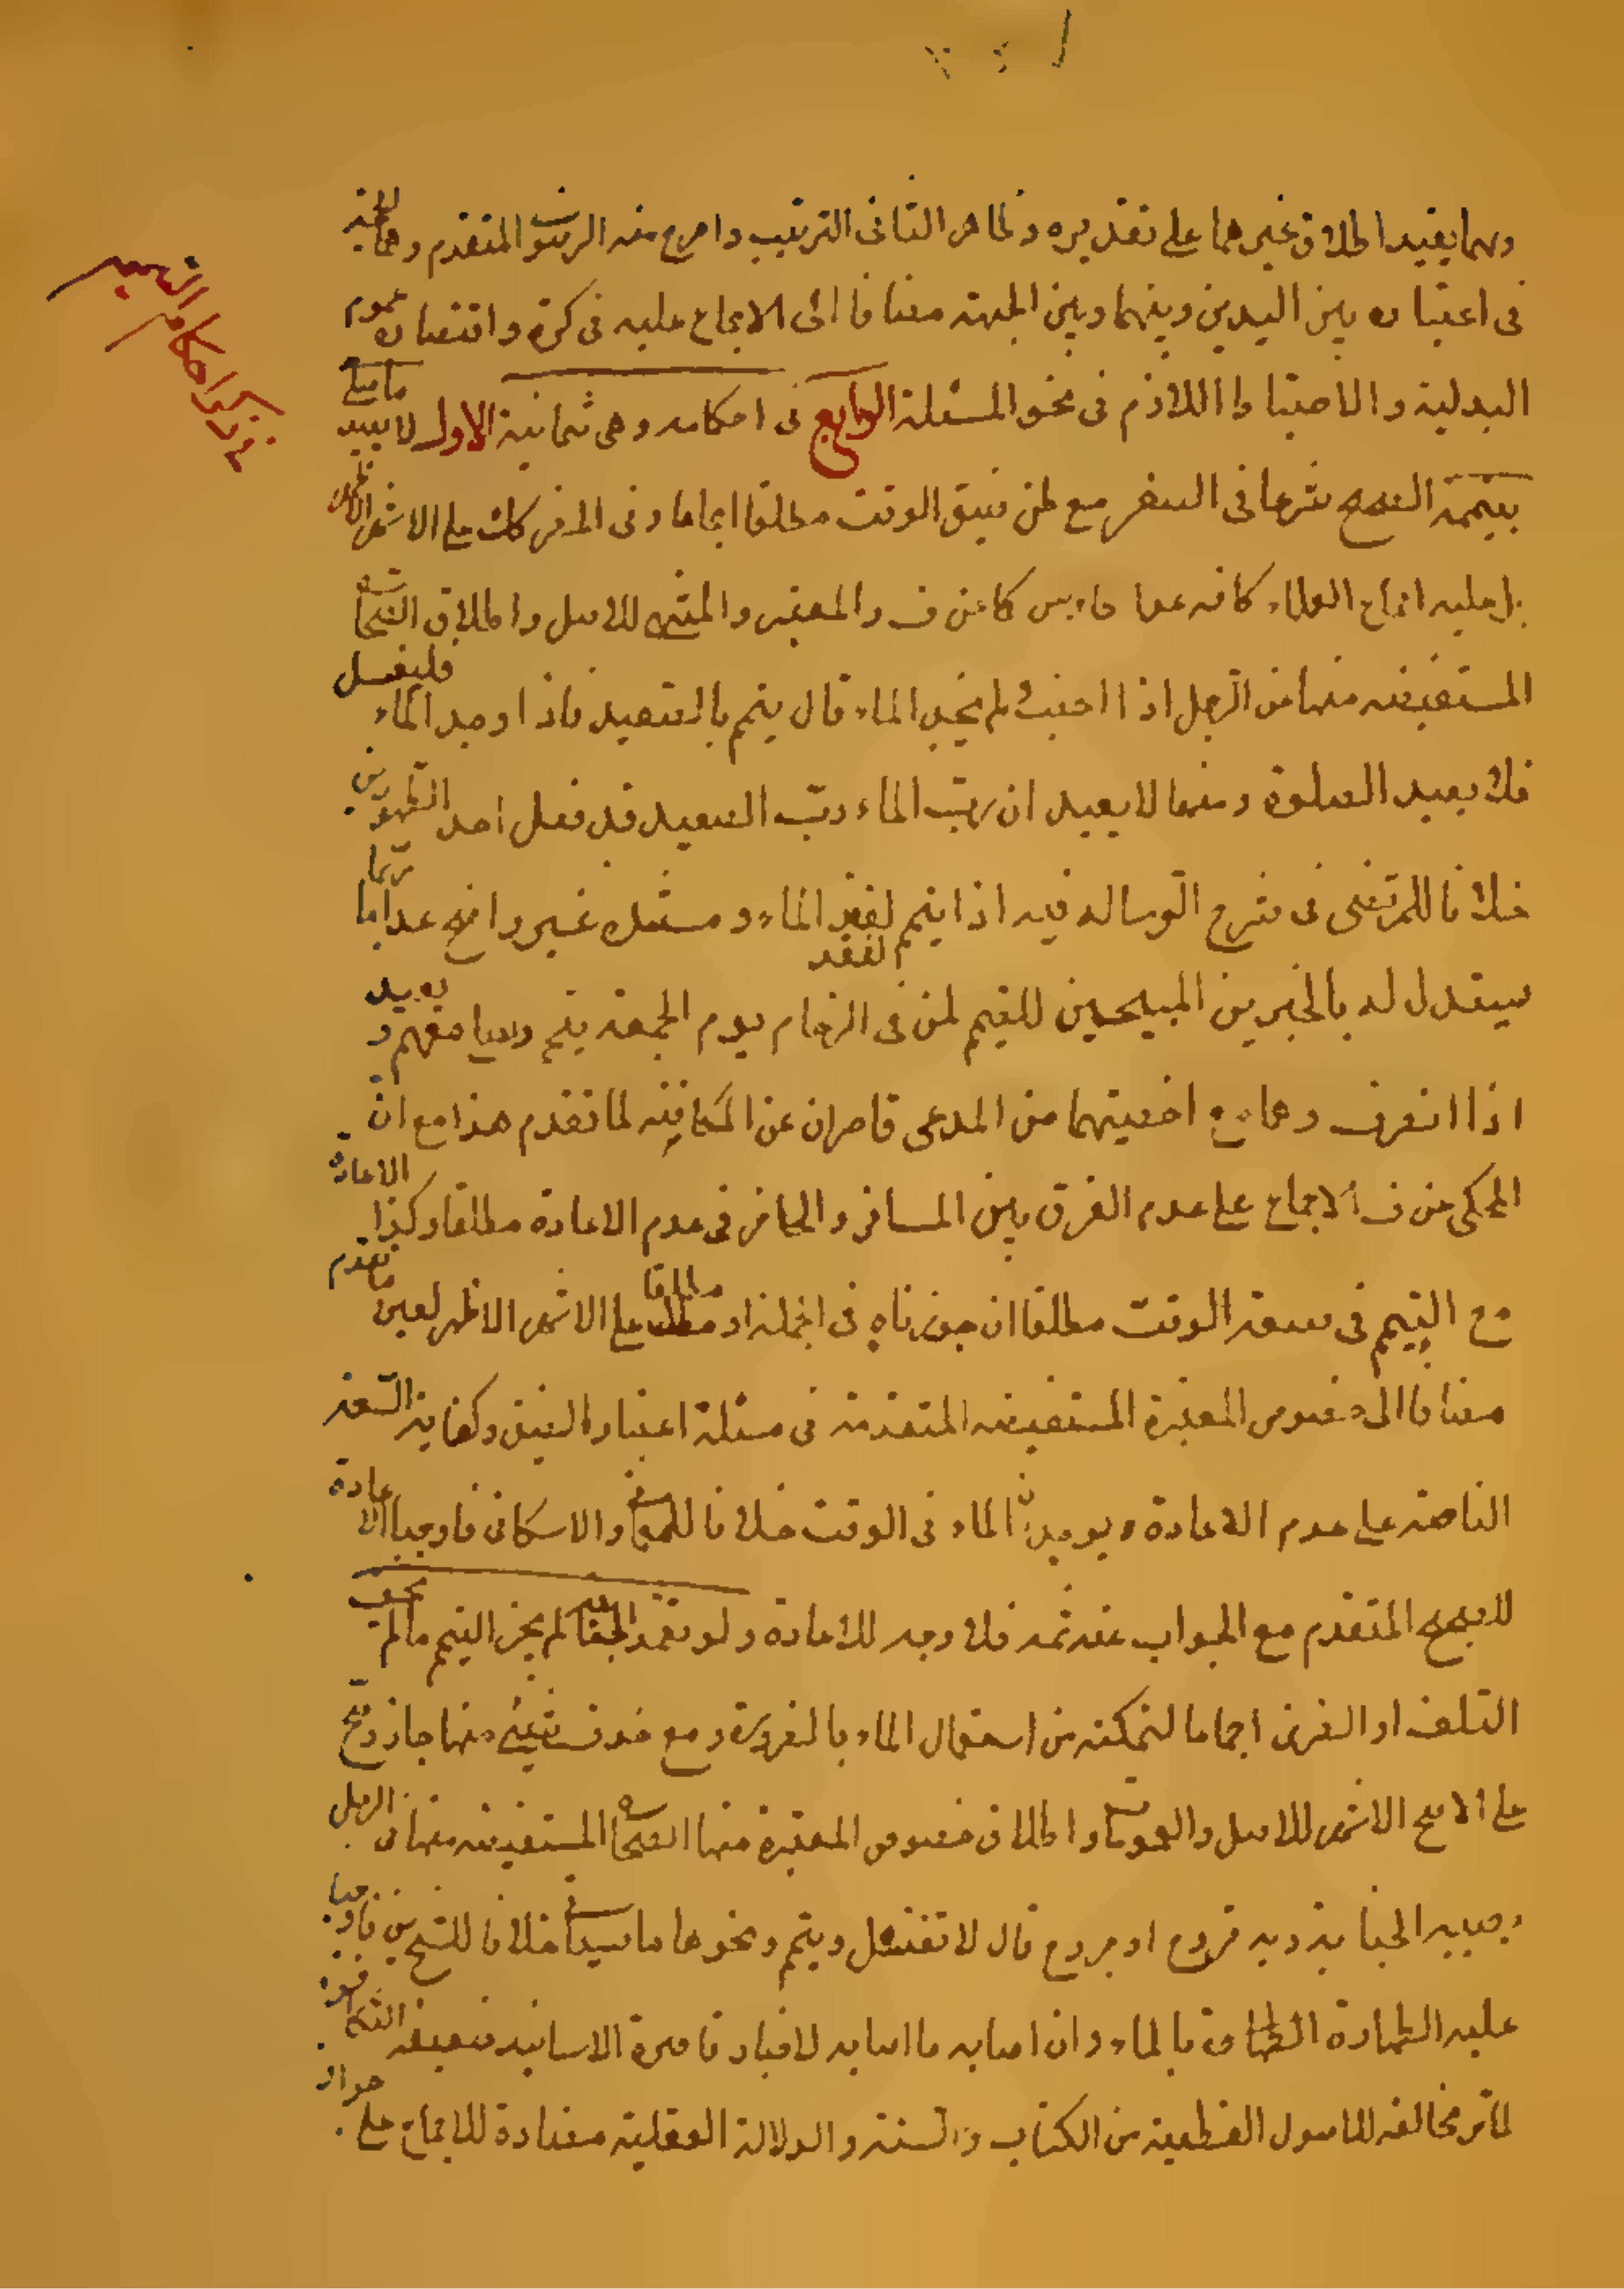 وبهما يقيد اطلاق غيرهما على تقديره وظاهر الثانى الترتيب واصرح منه الرضوى المتقدم وهما الحجة
فى اعتباره بين اليدين وبينهما وبين الجبهة مضافا الى الاجماع عليه فى كرة واقتضاء عموم
البدلية والاحتياط اللازم فى نحو المسئلة الرابع فى احكامه وهى ثمانية الاول لا يعيد ما صلى
بتيممه الصحيح شرعا فى السفر مع ضيق الوقت مطلقا اجماعا وفى الحضر كك على الاشهر الاظهر
بل عليه اجماع العلماء كافة عدا طاوس كما عن ف والمعتبر والمنتهى للاصل واطلاق الصحاح
المستفيضة منها عن الرجل اذا اجنب ولم يجد الماء قال يتيمم بالصعيد فاذا وجد الماء فليغتسل
فلا يعيد الصلوة ومنها لا يعيد ان رب الماء رب الصعيد قد فعل احد الطهورين
خلافا للمرتضى فى شرح الرسالة فيه اذا تيمم لفقد الماء ومستنده غير واضح عدا ما ربما
لفقد
يستدل له بالخبرين المبيحين للتيمم لمن فى الزحام يوم الجمعة يتيمم ويصلى معهم ويعيد
اذا انصرف وهما مع اخصيتهما من المدعى قاصران عن المكافئة لما تقدم هذا مع ان
المحكى عن ف الاجماع على عدم الفرق بين المسافر والحاضر فى عدم الاعادة مطلقا وكذا الاعادة
مع التيمم فى سعة الوقت مطلقا ان جوزناه فى الجملة او مطلقا على الاشهر الاظهر لعين ما تقدم
مضافا الى خصوص المعتبرة المستفيضة المتقدمة فى مسئلة اعتبار الضيق وكفاية السعة
الناصة على عدم الاعادة بوجدان الماء فى الوقت خلافا للعمانى والاسكافى فاوجبا الاعادة
للصحيح المتقدم مع الجواب عنه ثمة فلا وجه للاعادة ولو تعمد الجنابة لم يجز التيمم ما لم يخف
التلف او الضرر اجماعا لتمكنه من استعمال الماء بالضرورة ومع خوف شيئ منها جاز وصح
على الاصح الاشهر للاصل والعمومات واطلاق خصوص المعتبرة منها الصحاح المستفيضة منها فى الرجل
يصيبه الجنابة وبه قروح او جروح قال لا تغتسل ويتيمم ونحوها ما سيأتى خلافا للشيخين فاوجبا
عليه الطهارة بالماء وان اصابه ما اصابه لاخبار قاصرة الاسانيد ضعيفة
مخالفة للاصول القطعية من الكتاب والسنة والدلالة العقلية مضادة للاجماع على جواز
فى ذكر احكام التيمم